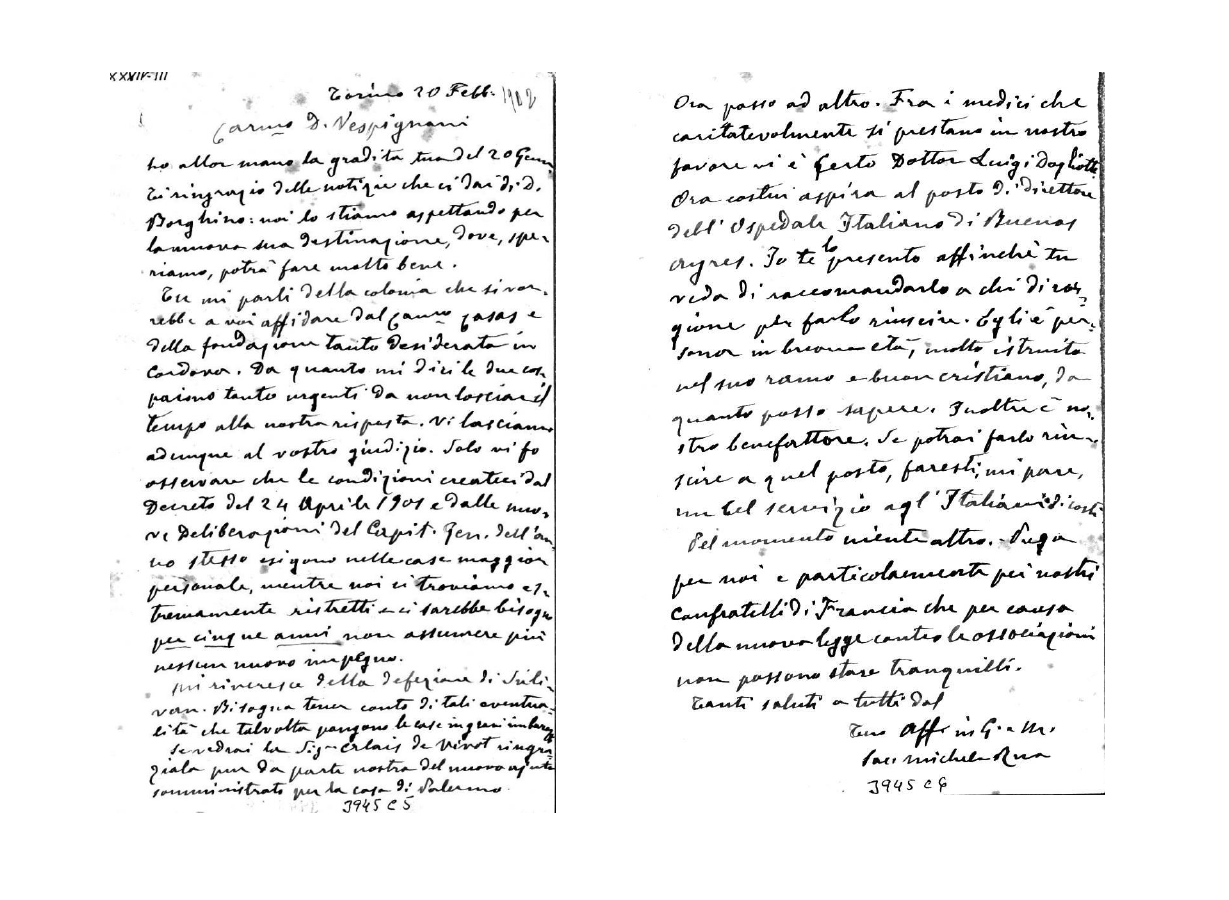 XXXIV-III
Torino 20 Febb. 1902
Carmo D. Vespignani
ho allor mano la gradita tua del 20 Genn.
Ti ringrazio delle notizie che ci dai di D.
Borghino: noi lo stiamo aspettando per
la nuova sua destinazione, dove, spe-
riamo, potrà fare molto bene.
Tu mi parli della colonia che si vor-
rebbe a voi affidare dal Canco Casas e
della fondazione tanto desiderata in
Cordova. Da quanto mi dici le due cose
paiono tanto urgenti da non lasciare il
tempo alla nostra risposta. Vi lasciamo
adunque al vostro giudizio. Solo vi fo
osservare che le condizioni createci dal
Decreto del 24 Aprile 1901 e dalle nuo-
ve Deliberazioni del Capit. Gen. dell'an-
no stesso esigono nelle case maggior
personale, mentre noi ci troviamo es-
tremamente ristretti e ci sarebbe bisogno
per cinque anni non assumere più
nessun nuovo impegno.
Mi rincresce della defezione di Suli-
van. Bisogna tener conto di tali eventua-
lità che talvolta pongono le case in gravi imbarazzi
Se vedrai la Sigra de Vivot ringra-
ziala pur da parte nostra del nuovo ajuto
somministrato per la casa di Palermo.
3945 C 5
Ora passo ad altro. Fra i medici che
caritatevolmente si prestano in nostro
favore vi è certo Dottor Luigi Dogliotti
Ora costui aspira al posto di direttore
dell'Ospedale Italiano di Buenos
Ayres. Io te lo presento affinchè tu
veda di raccomandarlo a chi di ra-
gione per farlo riuscire. Egli è per-
sona in buona età, molto istruito
nel suo ramo e buon cristiano, da
quanto posso sapere. Inoltre è no-
stro benefattore. Se potrai farlo riu-
scire a quel posto, faresti, mi pare,
un bel servizio agl'Italiani di costì
Pel momento niente altro. Prega
per noi e particolarmente pei nostri
Confratelli di Francia che per causa
della nuova legge contro le associazioni
non possono stare tranquilli.
Tanti saluti a tutti dal
Tuo Aff in G. e M.
Sac. Michele Rua
3945 C 6